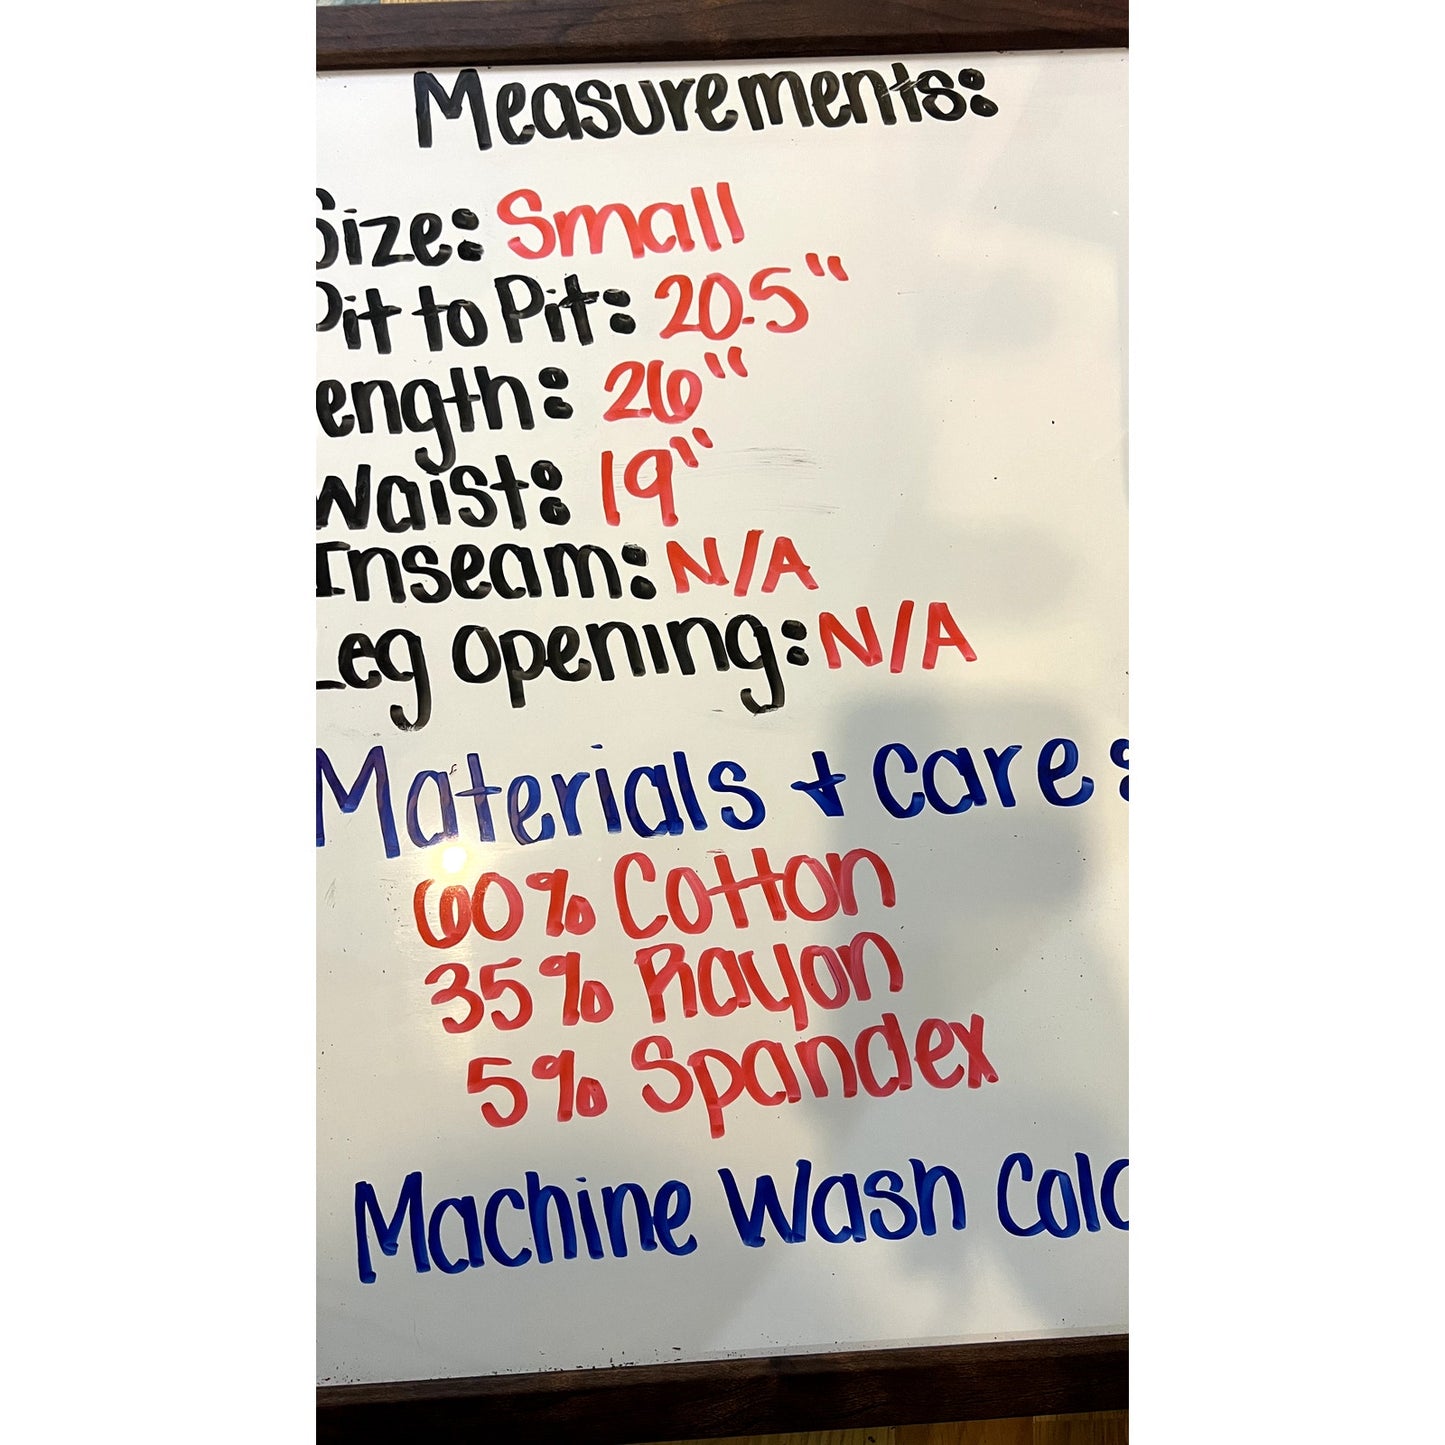 Measurements:
Size: Small
Pit to Pit: 20.5"
ength: 26"
Waist: 19"
Inseam: N/A
Leg opening: N/A
Materials + care:
60% Cotton
35% Rayon
5% Spandex
Machine Wash Cold